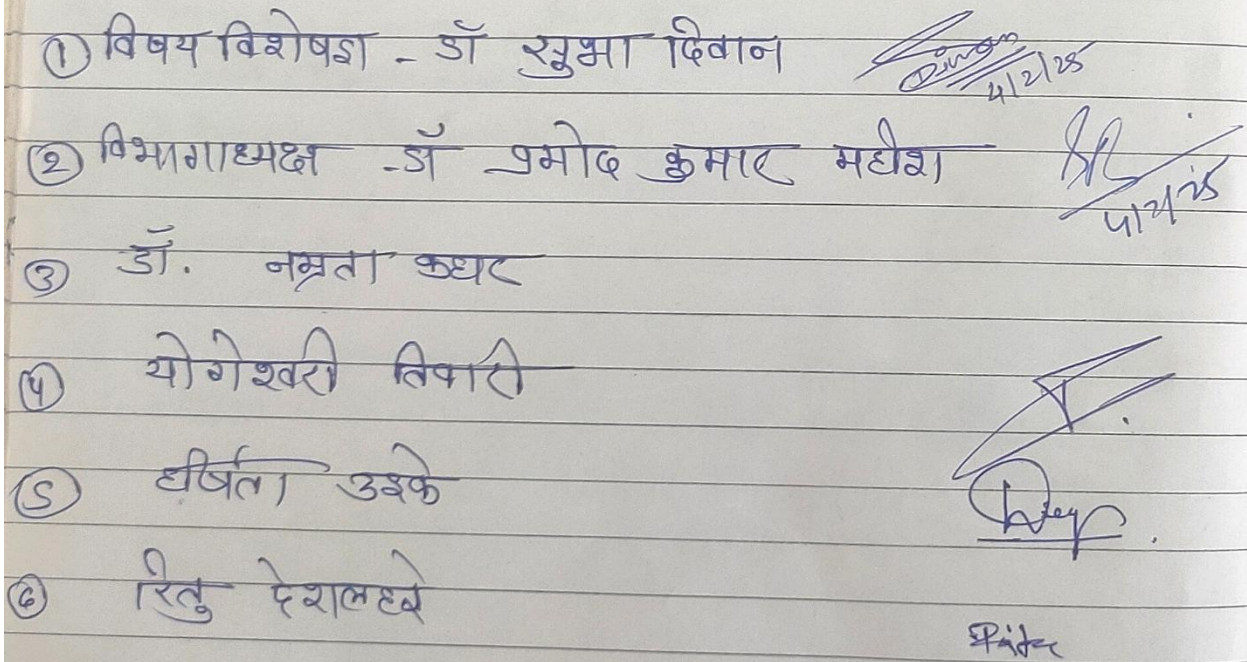 ① विषय विशेषज्ञ - डॉ सुभा दिवान Diwan 4/2/25
② विभागाध्यक्ष - डॉ प्रमोद कुमार महीश 4/2/25
③ डॉ. नम्रता कधर
④ योगेश्वरी तिवारी
⑤ हर्षिता उइके
⑥ रितु देशलहरे